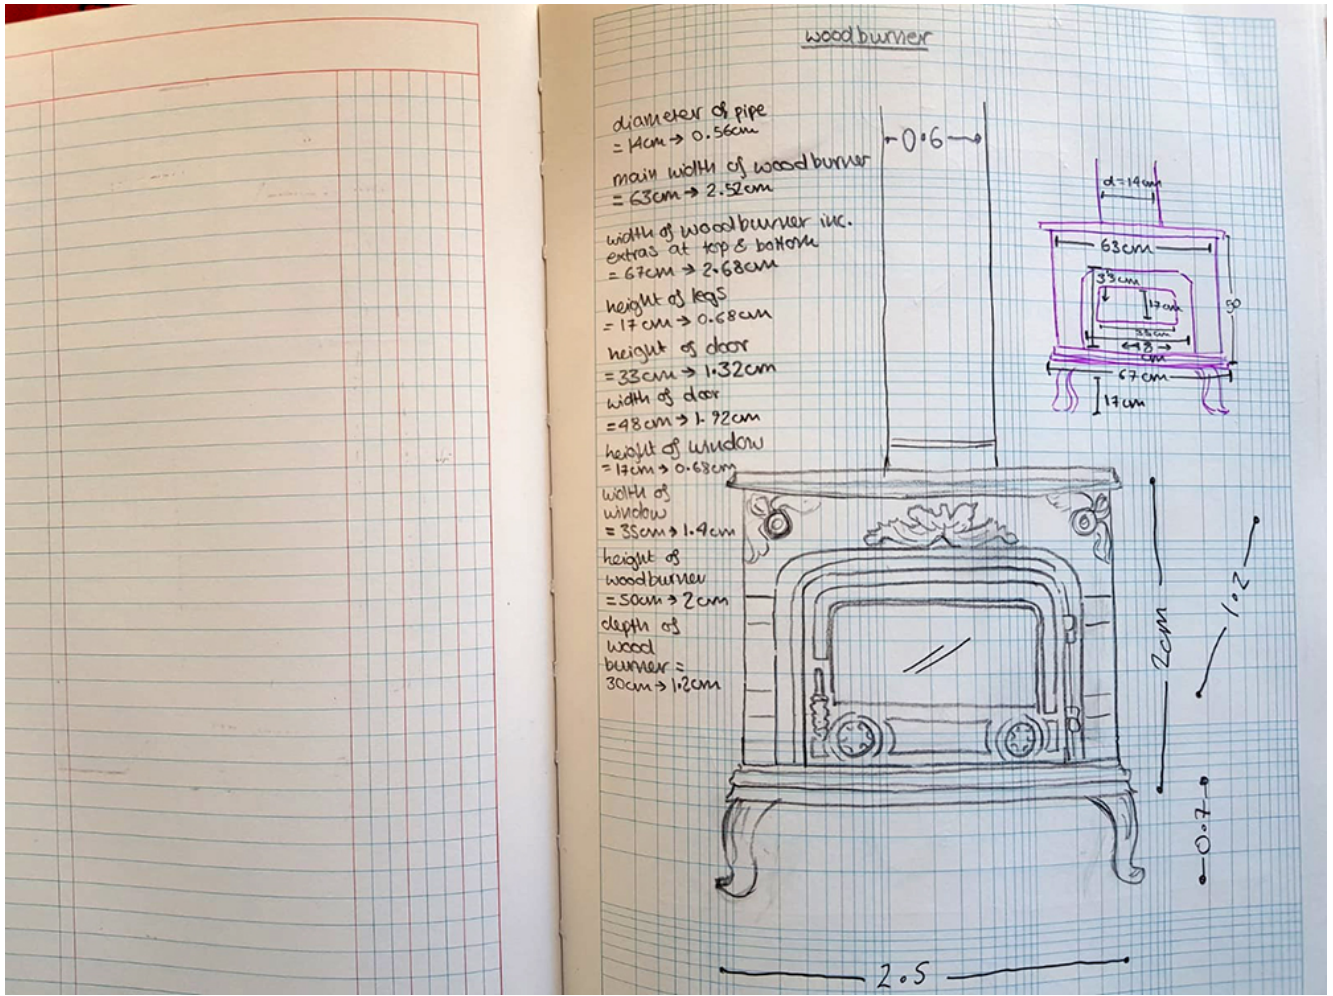 woodburner
diameter of pipe
= 14cm → 0.56cm
main width of woodburner
= 63cm → 2.52cm
width of woodburner inc.
extras at top & bottom
= 67cm → 2.68cm
height of legs
= 17cm → 0.68cm
height of door
= 33cm → 1.32cm
width of door
= 48cm → 1.92cm
height of window
= 17cm → 0.68cm
width of
window
= 35cm → 1.4cm
height of
woodburner
= 50cm → 2cm
depth of
wood
burner =
30cm → 1.2cm
0.6
d=14cm
63cm
33cm
17cm
35cm
48
cm
50
67cm
17cm
2cm
1.2
0.7
2.5